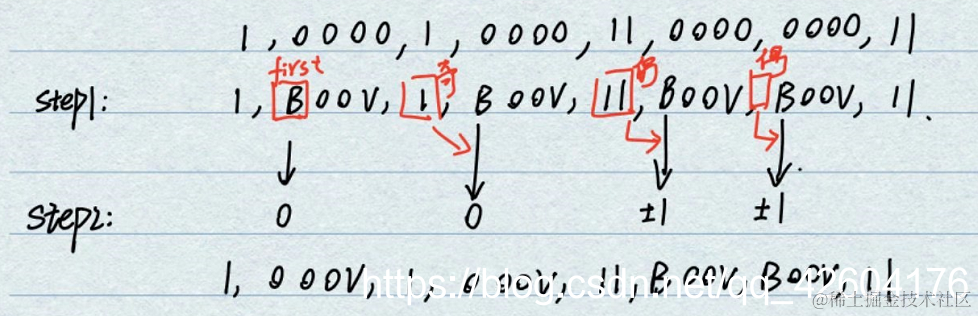 1 , 0 0 0 0 , 1 , 0 0 0 0 , 1 1 , 0 0 0 0 , 0 0 0 0 , 1 1
first 奇 偶 偶
step1: 1 , B 0 0 V , 1 , B 0 0 V , 1 1 , B 0 0 V , B 0 0 V , 1 1 .
step2: 0 0 ±1 ±1
1 , 0 0 0 V , 1 , 0 0 0 V , 1 1 , B 0 0 V , B 0 0 V , 1 1
https://blog.csdn.net/qq_42604176
@稀土掘金技术社区